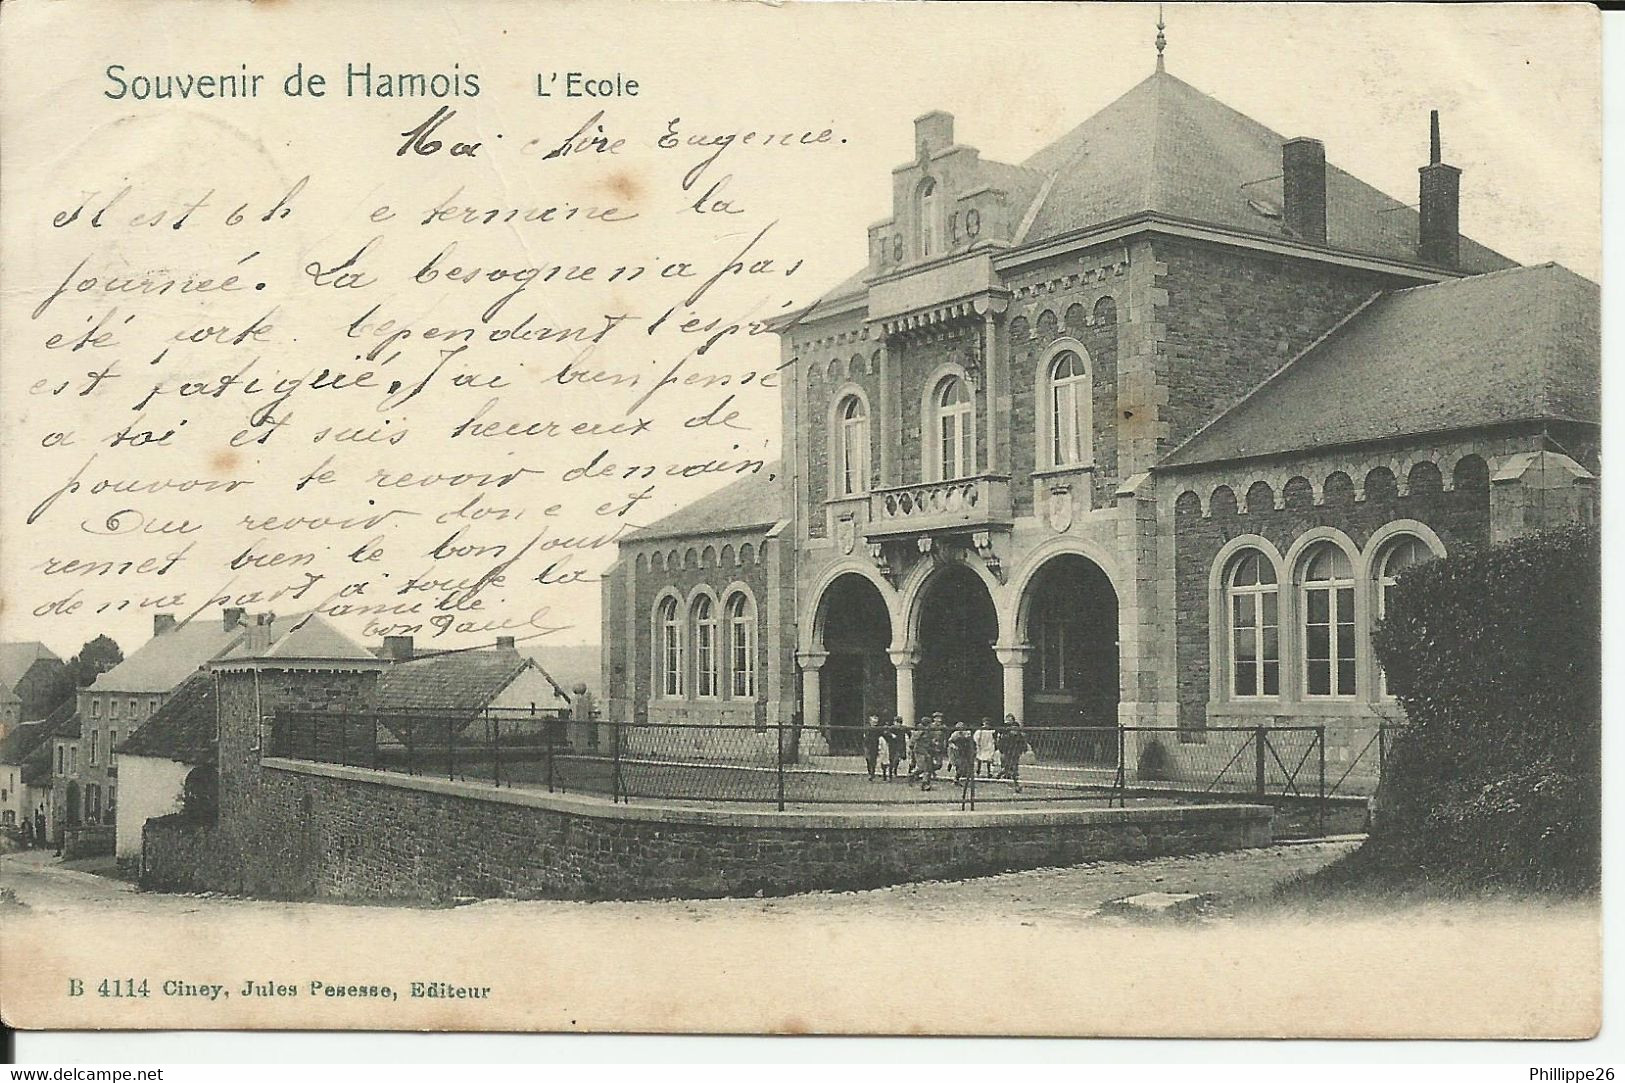 Souvenir de Hamois L'Ecole
Ma chère Eugenie.
Il est 6 h e termine la
journée. La besogne n'a pas
été forte. Cependant l'esprit
est fatigué. J'ai bien pensé
a toi et suis heureux de
pouvoir te revoir demain.
Au revoir donc et
remet bien le bonjour
de ma part a toute la
famille.
ton Paul
18 10
B 4114 Ciney, Jules Pesesse, Editeur
Phillippe26